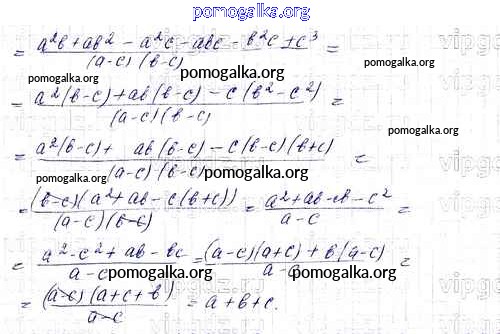 pomogalka.org
= a²b + ab² - a²c - abc - b²c + c³ / (a-c)(b-c) =
pomogalka.org pomogalka.org
= a²(b-c) + ab(b-c) - c(b²-c²) / (a-c)(b-c) =
pomogalka.org
= a²(b-c) + ab(b-c) - c(b-c)(b+c) / (a-c)(b-c) =
pomogalka.org
= (b-c)(a² + ab - c(b+c)) / (a-c)(b-c) = a² + ab - cb - c² / a-c =
pomogalka.org
= a² - c² + ab - bc / a-c = (a-c)(a+c) + b(a-c) / a-c =
pomogalka.org pomogalka.org
= (a-c)(a+c+b) / a-c = a + b + c.